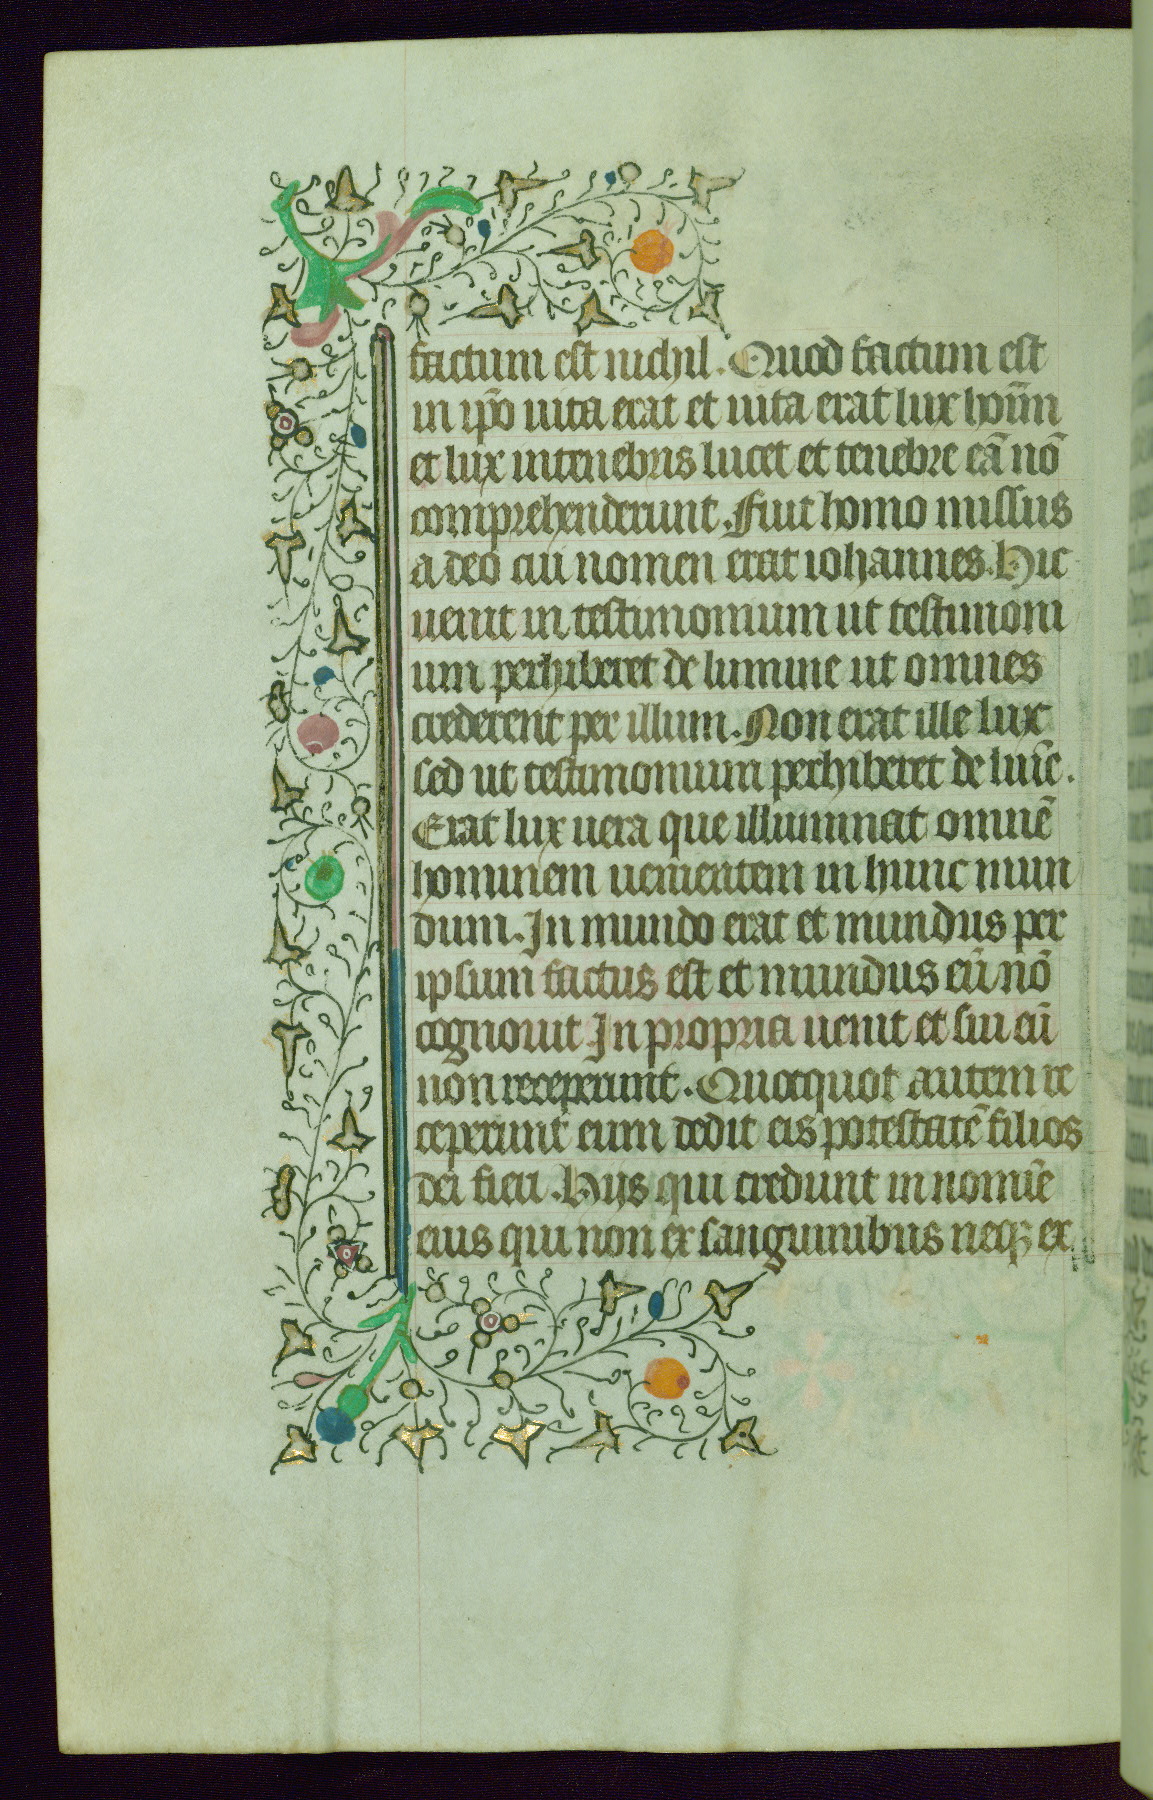 factum est nichil. Quod factum est
in ip̄o uita erat et uita erat lux hoīm
et lux in tenebris lucet et tenebre eā nō
comprehenderunt. Fuit homo missus
a deo cui nomen erat iohannes. Hic
uenit in testimonium ut testimoni
um perhiberet de lumine ut omnes
crederent per illum. Non erat ille lux
sed ut testimonium perhiberet de luīe.
Erat lux uera que illuminat omnē
hominem uenientem in hunc mun
dum. In mundo erat et mundus per
ipsum factus est et mundus eū nō
cognouit In propria uenit et sui eū
non receperunt. Quotquot autem re
ceperunt eum dedit eis potestatē filios
dei fieri. Hijs qui credunt in nomīe
eius qui non ex sanguinibus neqꝫ ex